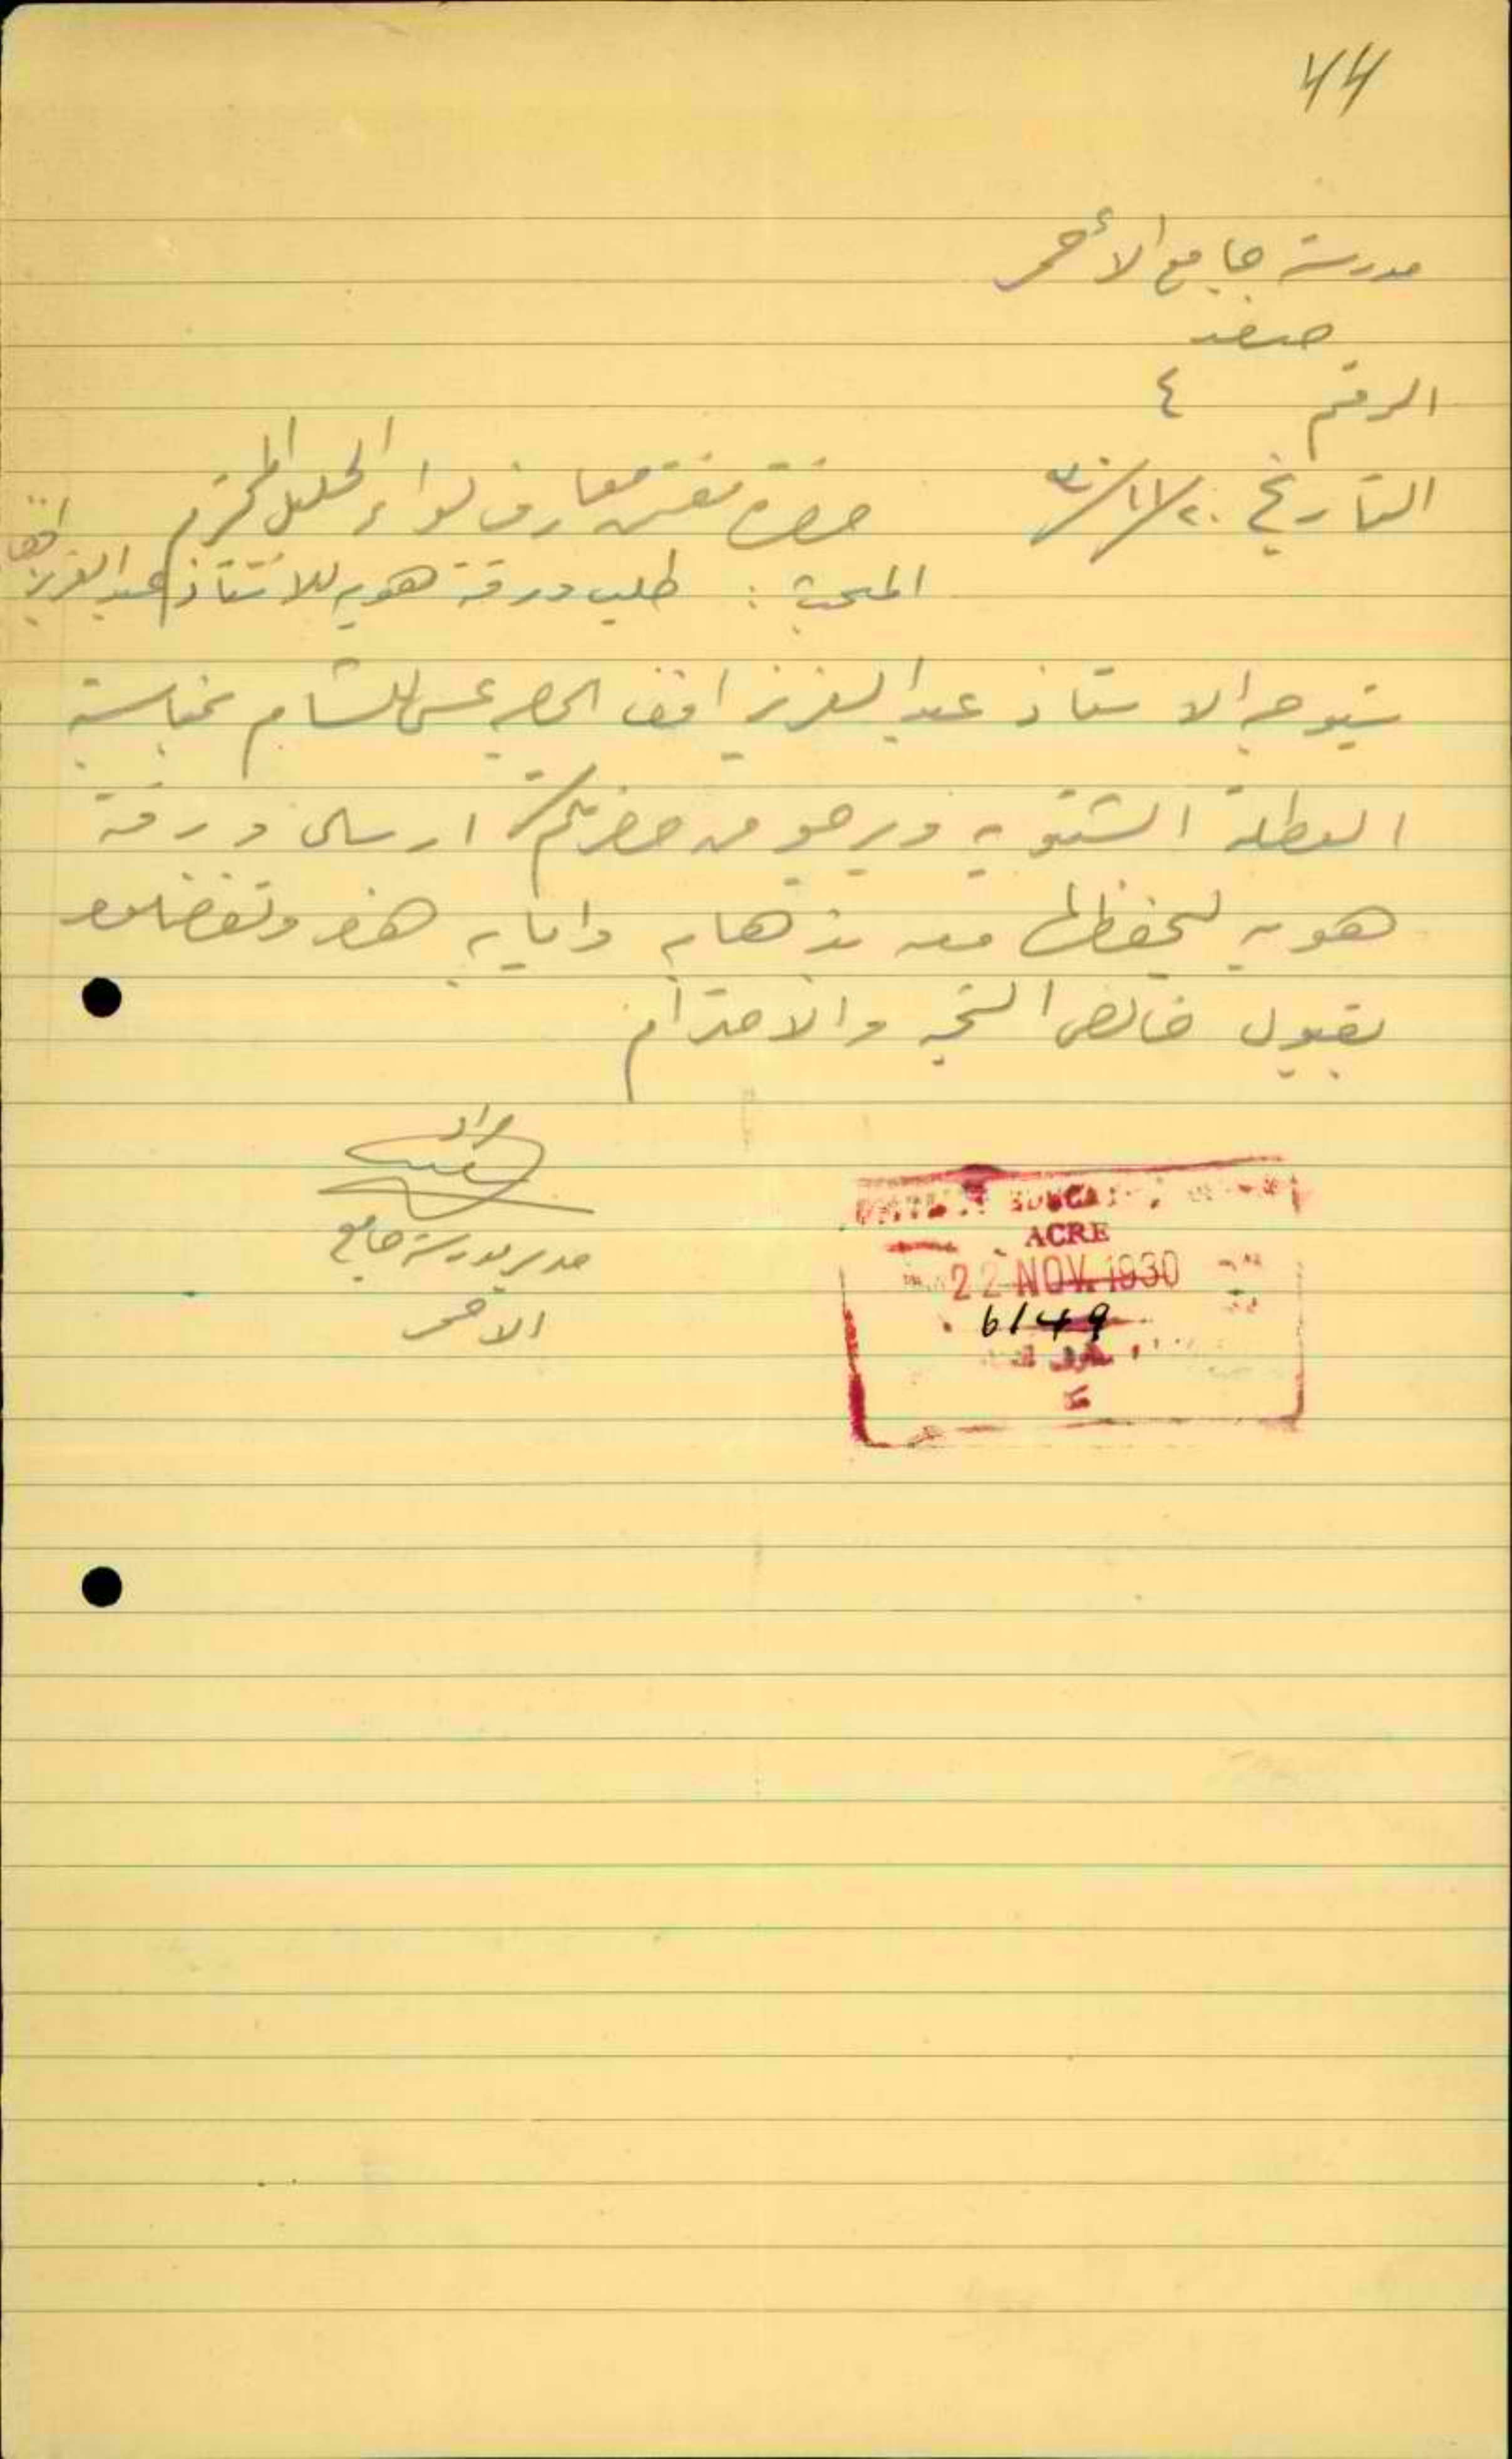 44
مدرسة جامع الأحمر
صفد
الرقم ٤
التاريخ ٢٠/١١/٣٠
حضرة مفتش معارف لواء الجليل المحترم
المبحث : طلب ورقة هويه للاستاذ عبد العزيز
سيتوجه الاستاذ عبد العزيز للشام بمناسبة
العطلة الشتويه ويرجو من حضرتكم ارسال ورقة
هويه ليحفظها معه بذهابه وايابه هذا وتفضلوا
بقبول خالص التحيه والاحترام
مراد
مدير مدرسة جامع
الاحمر
ACRE
22 NOV. 1930
6149